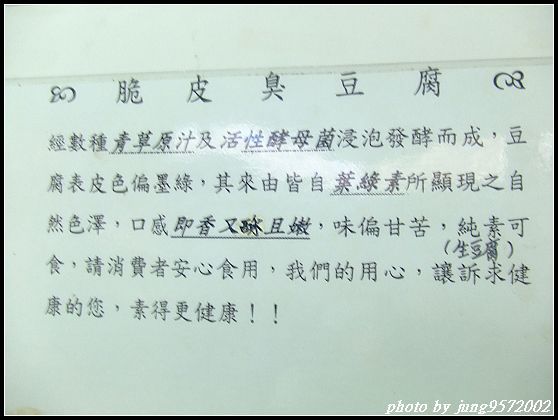 脆皮臭豆腐
經數種青草原汁及活性酵母菌浸泡發酵而成，豆
腐表皮色偏墨綠，其來由皆自葉綠素所顯現之自
然色澤，口感即香又酥且嫩，味偏甘苦，純素可
(生豆腐)
食，請消費者安心食用，我們的用心，讓訴求健
康的您，素得更健康！！
photo by jung9572002